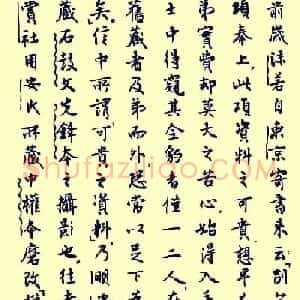 前歲沫若自東京寄書来云「割
項奉上,此項資料之可貴想早
弟實費却莫大之苦心始得入
士中得窺其全豹者僅一二人
舊藏者及弟而外恐當以足下為
矣」信中所謂「可貴之資料」乃明
藏石鼓文先鋒本之攝影也往者
賈社用安氏所藏中權本磨改
Shufaziliao.COM